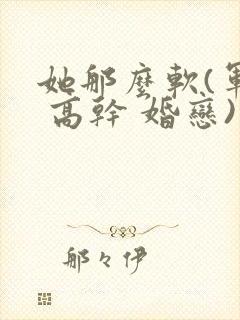 她那麼軟(軍
高幹 婚戀)
那々伊